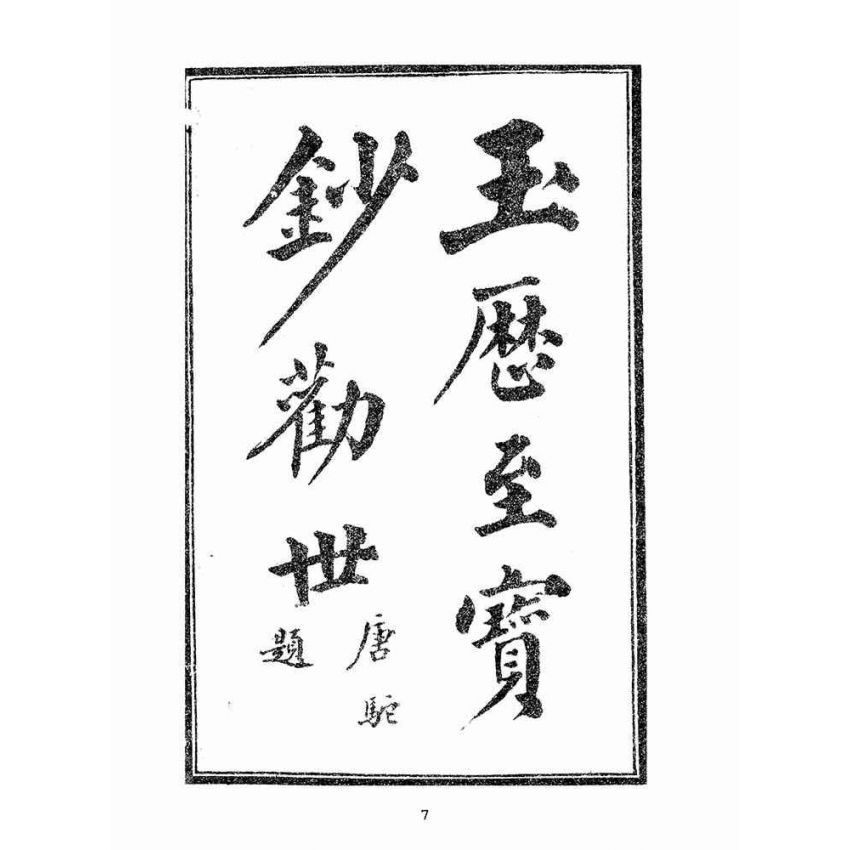 玉厯至寶
鈔勸世
唐駝
題
7